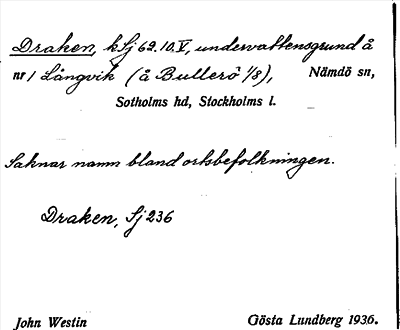 Draken, k Sj 69.10.V, undervattensgrund å
nr 1 Långvik (å Bullerö 1/8), Nämdö sn,
Sotholms hd, Stockholms l.
Saknar namn bland ortsbefolkningen.
Draken, Sj 236
John Westin Gösta Lundberg 1936.